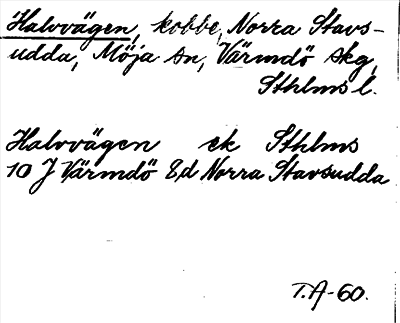 Halvvägen, kobbe, Norra Stavs-
udda, Möja sn, Värmdö skg,
Sthlms l.
Halvvägen ek Sthlms
10 J Värmdö 8,d Norra Stavsudda
T.A-60.